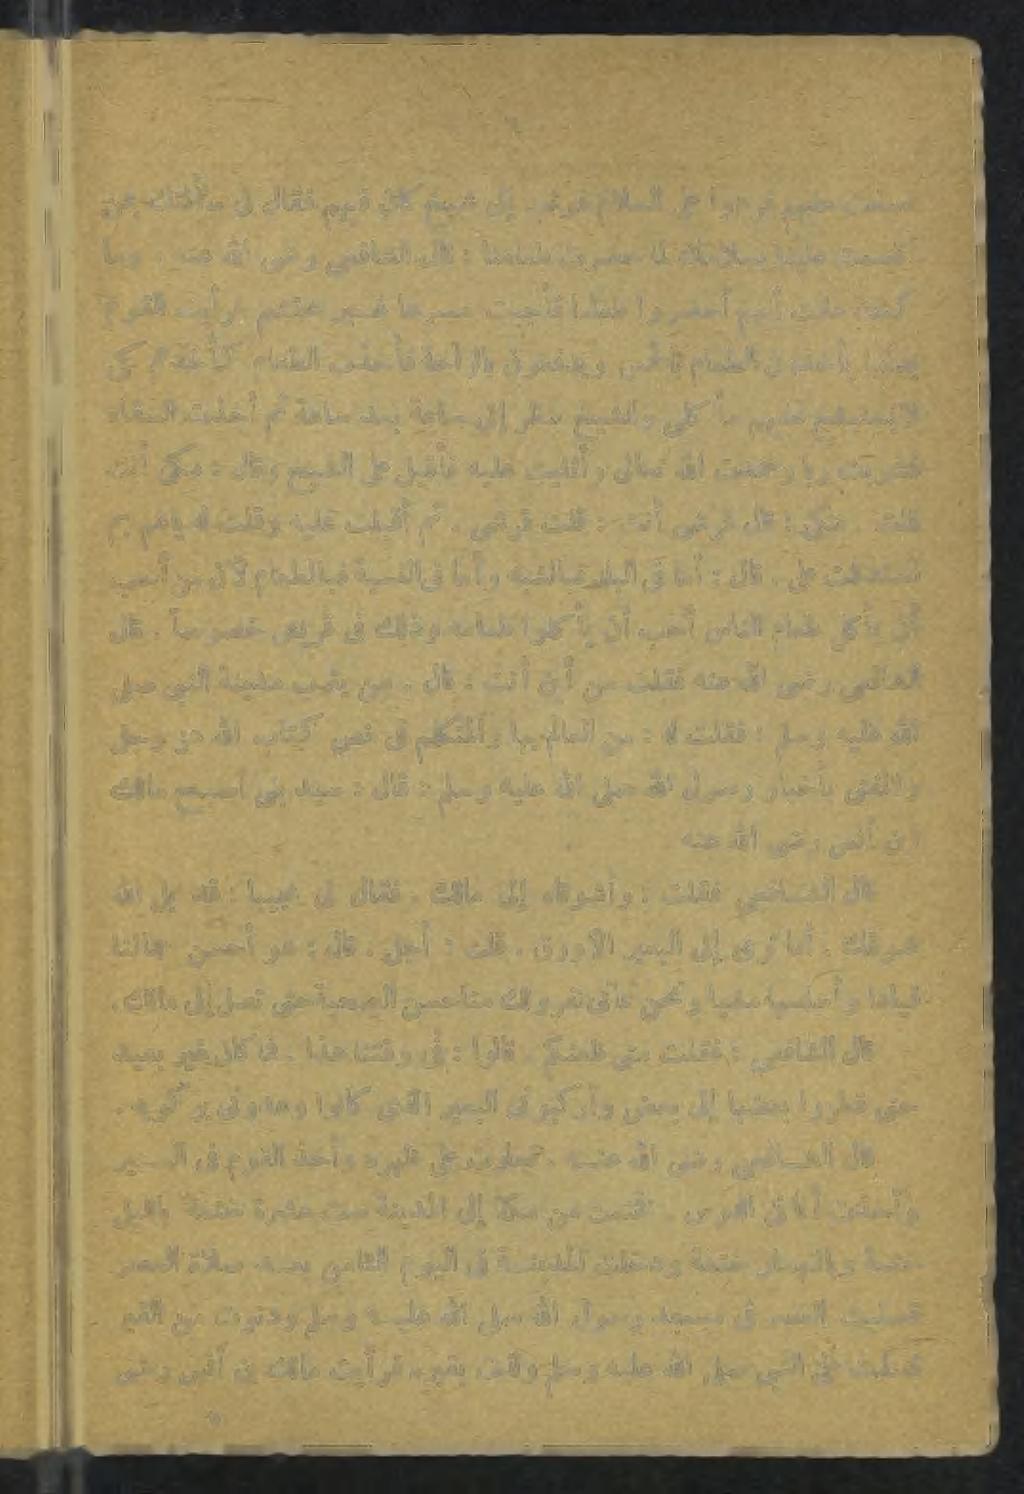 سلمت عليهم فردوا على السلام فوثب إلى شيخ كان فيهم فقال لى سألتك عن
لما حضرت طعامنا : قال الشافعى رضى الله عنه . وما
كنت علمت أنهم أحضروا طعاما فأجبت مسرعا غير محتشم فرأيت القوم
يأخذون الطعام بالخمس ويدفعون بالراحة فأخذت الطعام كأخذهم كى
لا يستبشع عليهم مأكلى والشيخ ينظر إلى ساعة بعد ساعة ثم أخذت السقاء
فشربت ريا وحمدت الله تعالى وأثنيت عليه فأقبل على الشيخ وقال : مكى أنت
قلت . مكى : قال قرشى أنت : قلت قرشى . ثم أقبلت عليه وقلت له ياعم بم
استدللت على . قال : أما فى البلد فبالشبه وأما فى النسبة فبالطعام لأن من أحب
أن يأكل طعام الناس أحب أن يأكلوا طعامه وذلك فى قريش خصوصاً . قال
الشافعى رضى الله عنه فقلت من أين أنت : قال . من يثرب مدينة النبى صلى
الله عليه وسلم : فقلت له : من العالم بها والمتكلم فى نص كتاب الله عز وجل
والمفتى بأخبار رسول الله صلى الله عليه وسلم : قال : سيد بنى أصبح مالك
ابن أنس رضى الله عنه
قال الشافعى فقلت : واشوقاه إلى مالك . فقال لى مجيبا : قد بل الله
شوقك . أما ترى إلى البعير الأورق . قلت : أجل . قال : هو أحسن جمالنا
قيادا وأسلسها مشيا ونحن لك منا حسن الصحبة حتى تصل إلى مالك .
قال الشافعى : فقلت متى ظعنكم . قالوا : فى وقتنا هذا . فما كان غير بعيد
حتى قطروا بعضها إلى بعض وأركبونى البعير الذى كانوا وعدونى بركوبه .
قال الشافعى رضى الله عنه . فعلوت على ظهره وأخذ القوم فى السير
وأخذت أنا فى الدرس . فختمت من مكة إلى المدينة ست عشرة ختمة بالليل
ختمة وبالنهار ختمة ودخلت المدينة فى اليوم الثامن بعد صلاة العصر
فصليت العصر فى مسجد رسول الله صلى الله عليه وسلم ودنوت من القبر
فسلمت على النبى صلى الله عليه وسلم بقبره فرأيت مالك بن أنس رضى